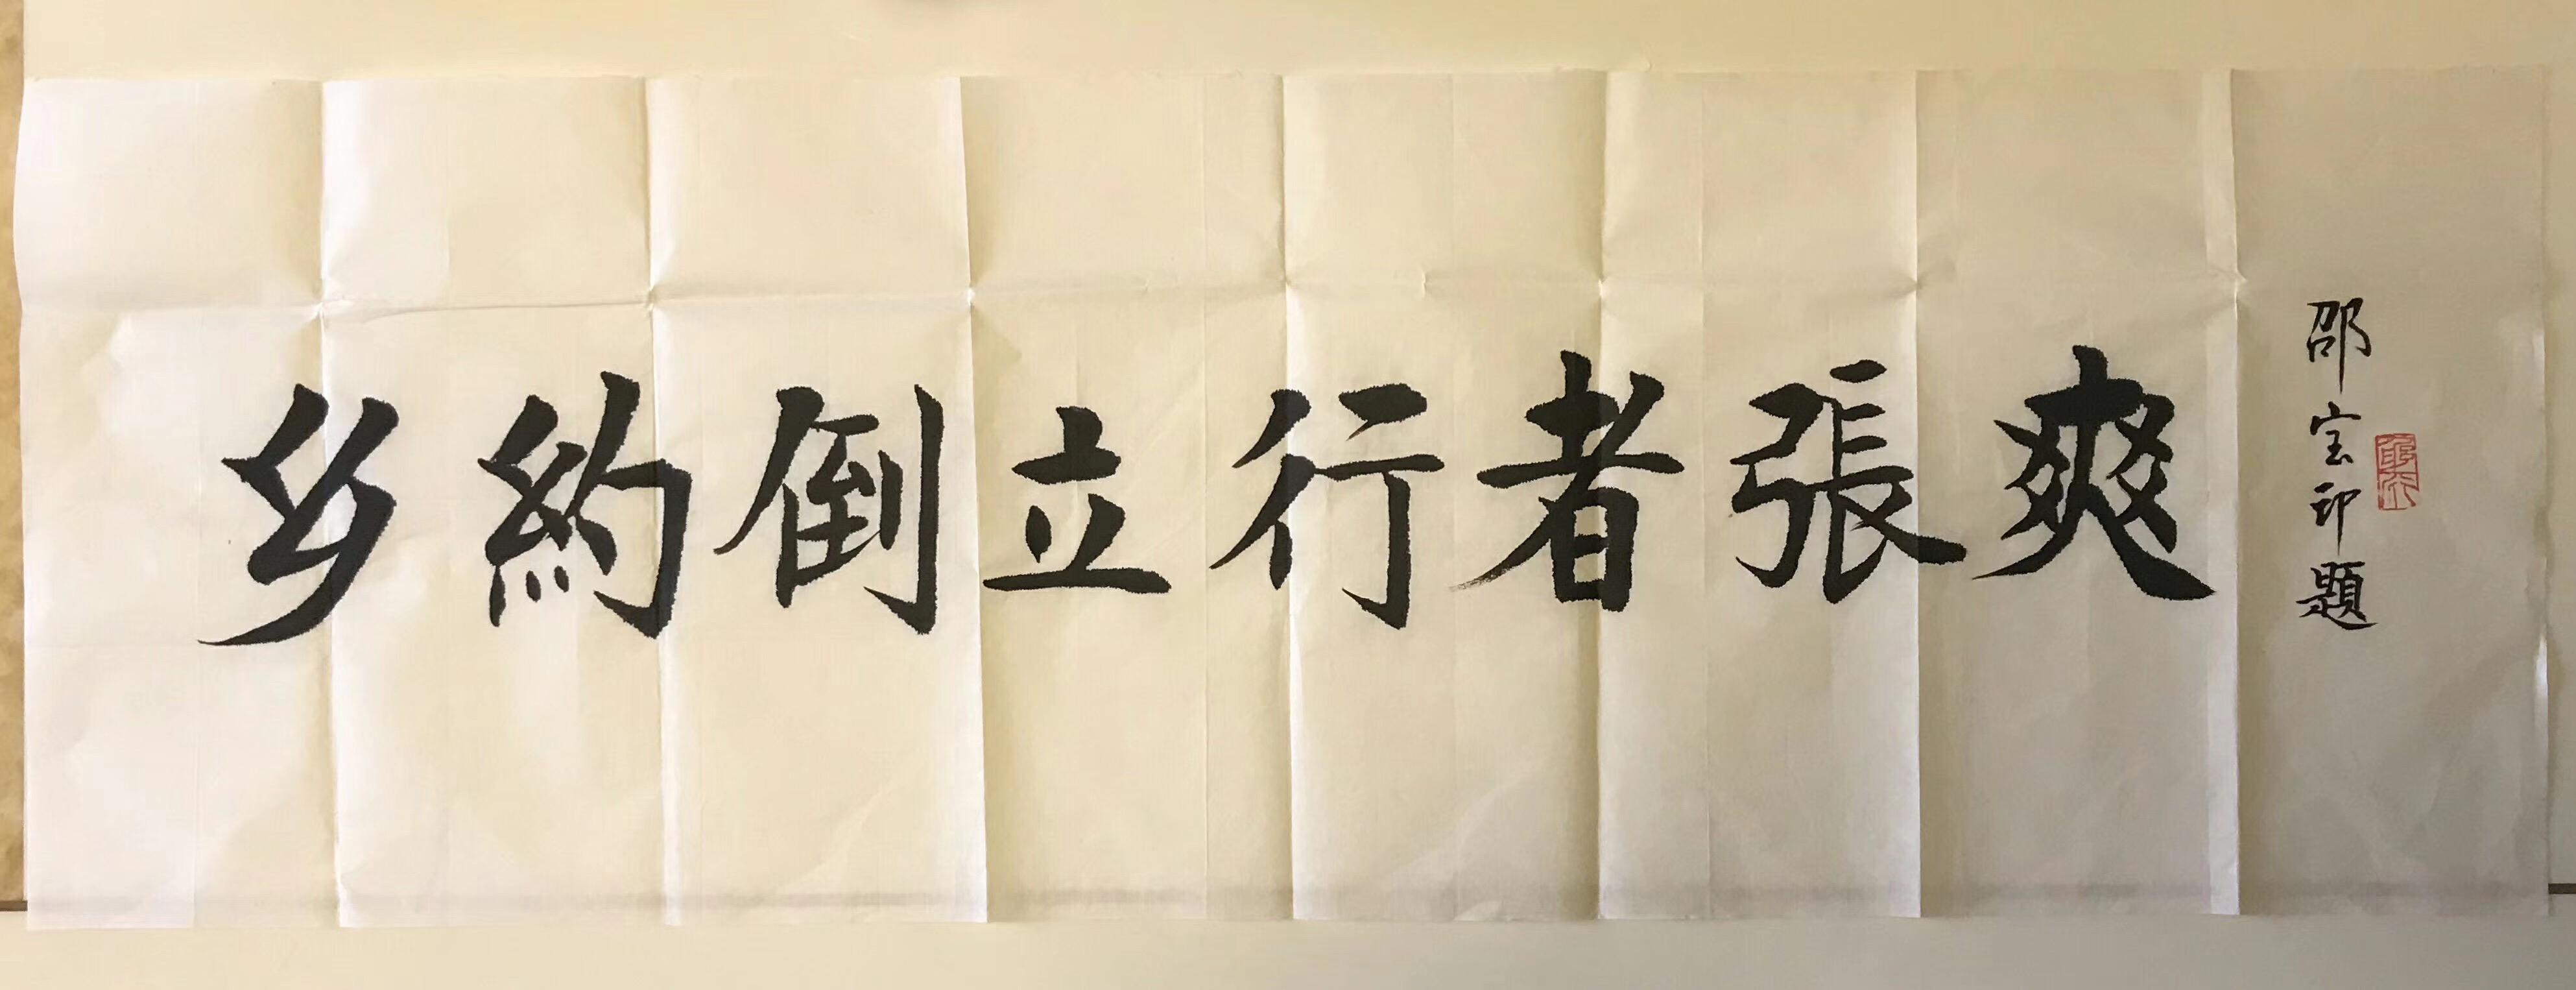 乡約倒立行者張爽
邵宝印題